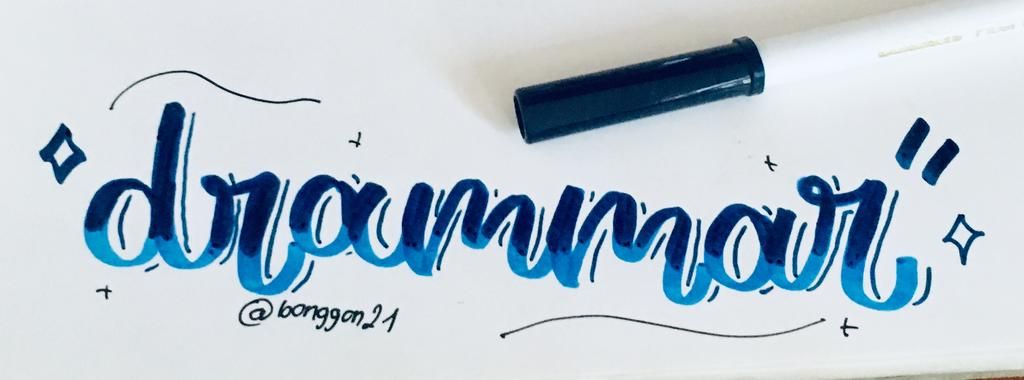 drammar
@bonggon21